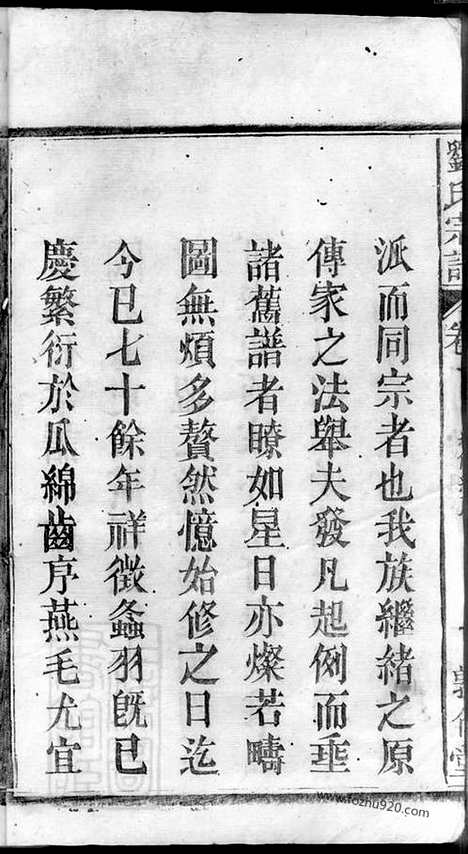 劉氏宗譜
卷
派而同宗者也我族繼緒之原
傳家之法舉夫發凡起例而垂
諸舊譜者瞭如星日亦燦若疇
圖無煩多贅然憶始修之日迄
今已七十餘年祥徵螽羽旣已
慶繁衍於瓜綿齒序燕毛尤宜
www.fozhu920.com